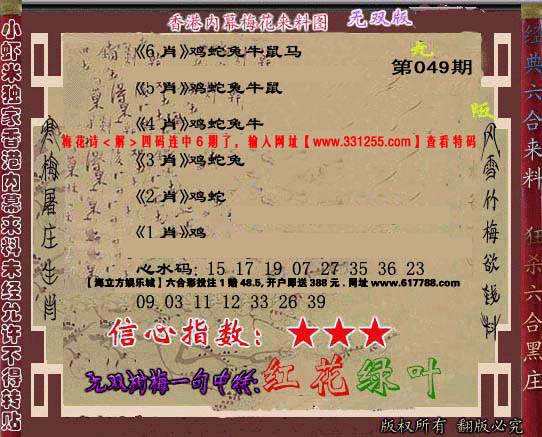 香港内幕梅花来料图 无双版
《6 肖》鸡蛇兔牛鼠马
第049期
《5 肖》鸡蛇兔牛鼠
《4 肖》鸡蛇兔牛
梅花诗＜解＞四码连中 6 期了，输入网址【www.331255.com】查看特码
《3 肖》鸡蛇兔
《2 肖》鸡蛇
《1 肖》鸡
心水码: 15 17 19 07 27 35 36 23
【海立方娱乐城】六合彩投注 1 赔 48.5, 开户即送 388 元 . 网址 www.617788.com
09 03 11 12 33 26 39
信心指数：★★★
无双刘梅一句中特:红花绿叶
版权所有 翻版必究
小虾米独家香港内幕来料未经允许不得转贴
寒梅屠庄生肖
风雪竹梅欲钱料
经典六合来料
狂杀六合黑庄